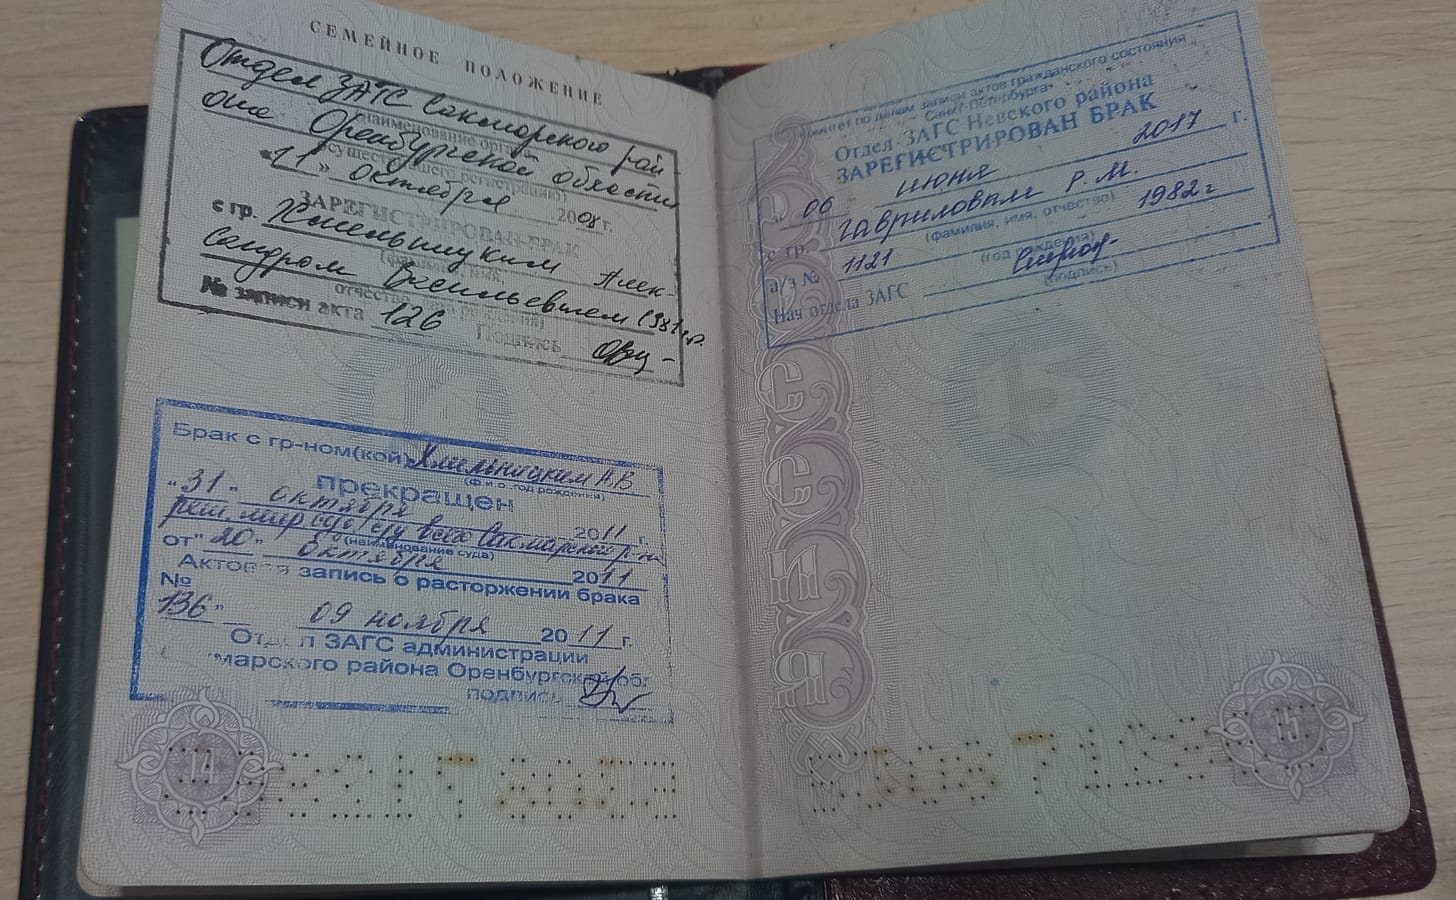 СЕМЕЙНОЕ ПОЛОЖЕНИЕ
Отдел ЗАГС Сакмарского рай-
она Оренбургской области
(наименование органа,
осуществившего регистрацию)
"11" октября 2008 г.
ЗАРЕГИСТРИРОВАН БРАК
с гр. Хмельницким Алек-
сандром Васильевичем 1981 г.р.
(фамилия, имя,
отчество, дата рождения)
№ записи акта 126 Подпись
Брак с гр-ном(кой) Хмельницким А.В
(ф.и.о. год рождения)
прекращен
"31" октября 2011 г.
реш. мир суд с/у Сакмарского р-на
(наименование суда)
от "20" октября 2011
Актовая запись о расторжении брака
№
136 " 09 ноября 2011 г.
Отдел ЗАГС администрации
марского района Оренбургской обл
подпись
14
Комитет по делам записи актов гражданского состояния
Санкт-Петербурга
Отдел ЗАГС Невского района
ЗАРЕГИСТРИРОВАН БРАК
" 06 " июня 2017 г.
с гр. Гавриловым Р.М.
(фамилия, имя, отчество)
1982 г
(год рождения)
а/з № 1121
Нач. отдела ЗАГС
(подпись)
РОССИЯ
15